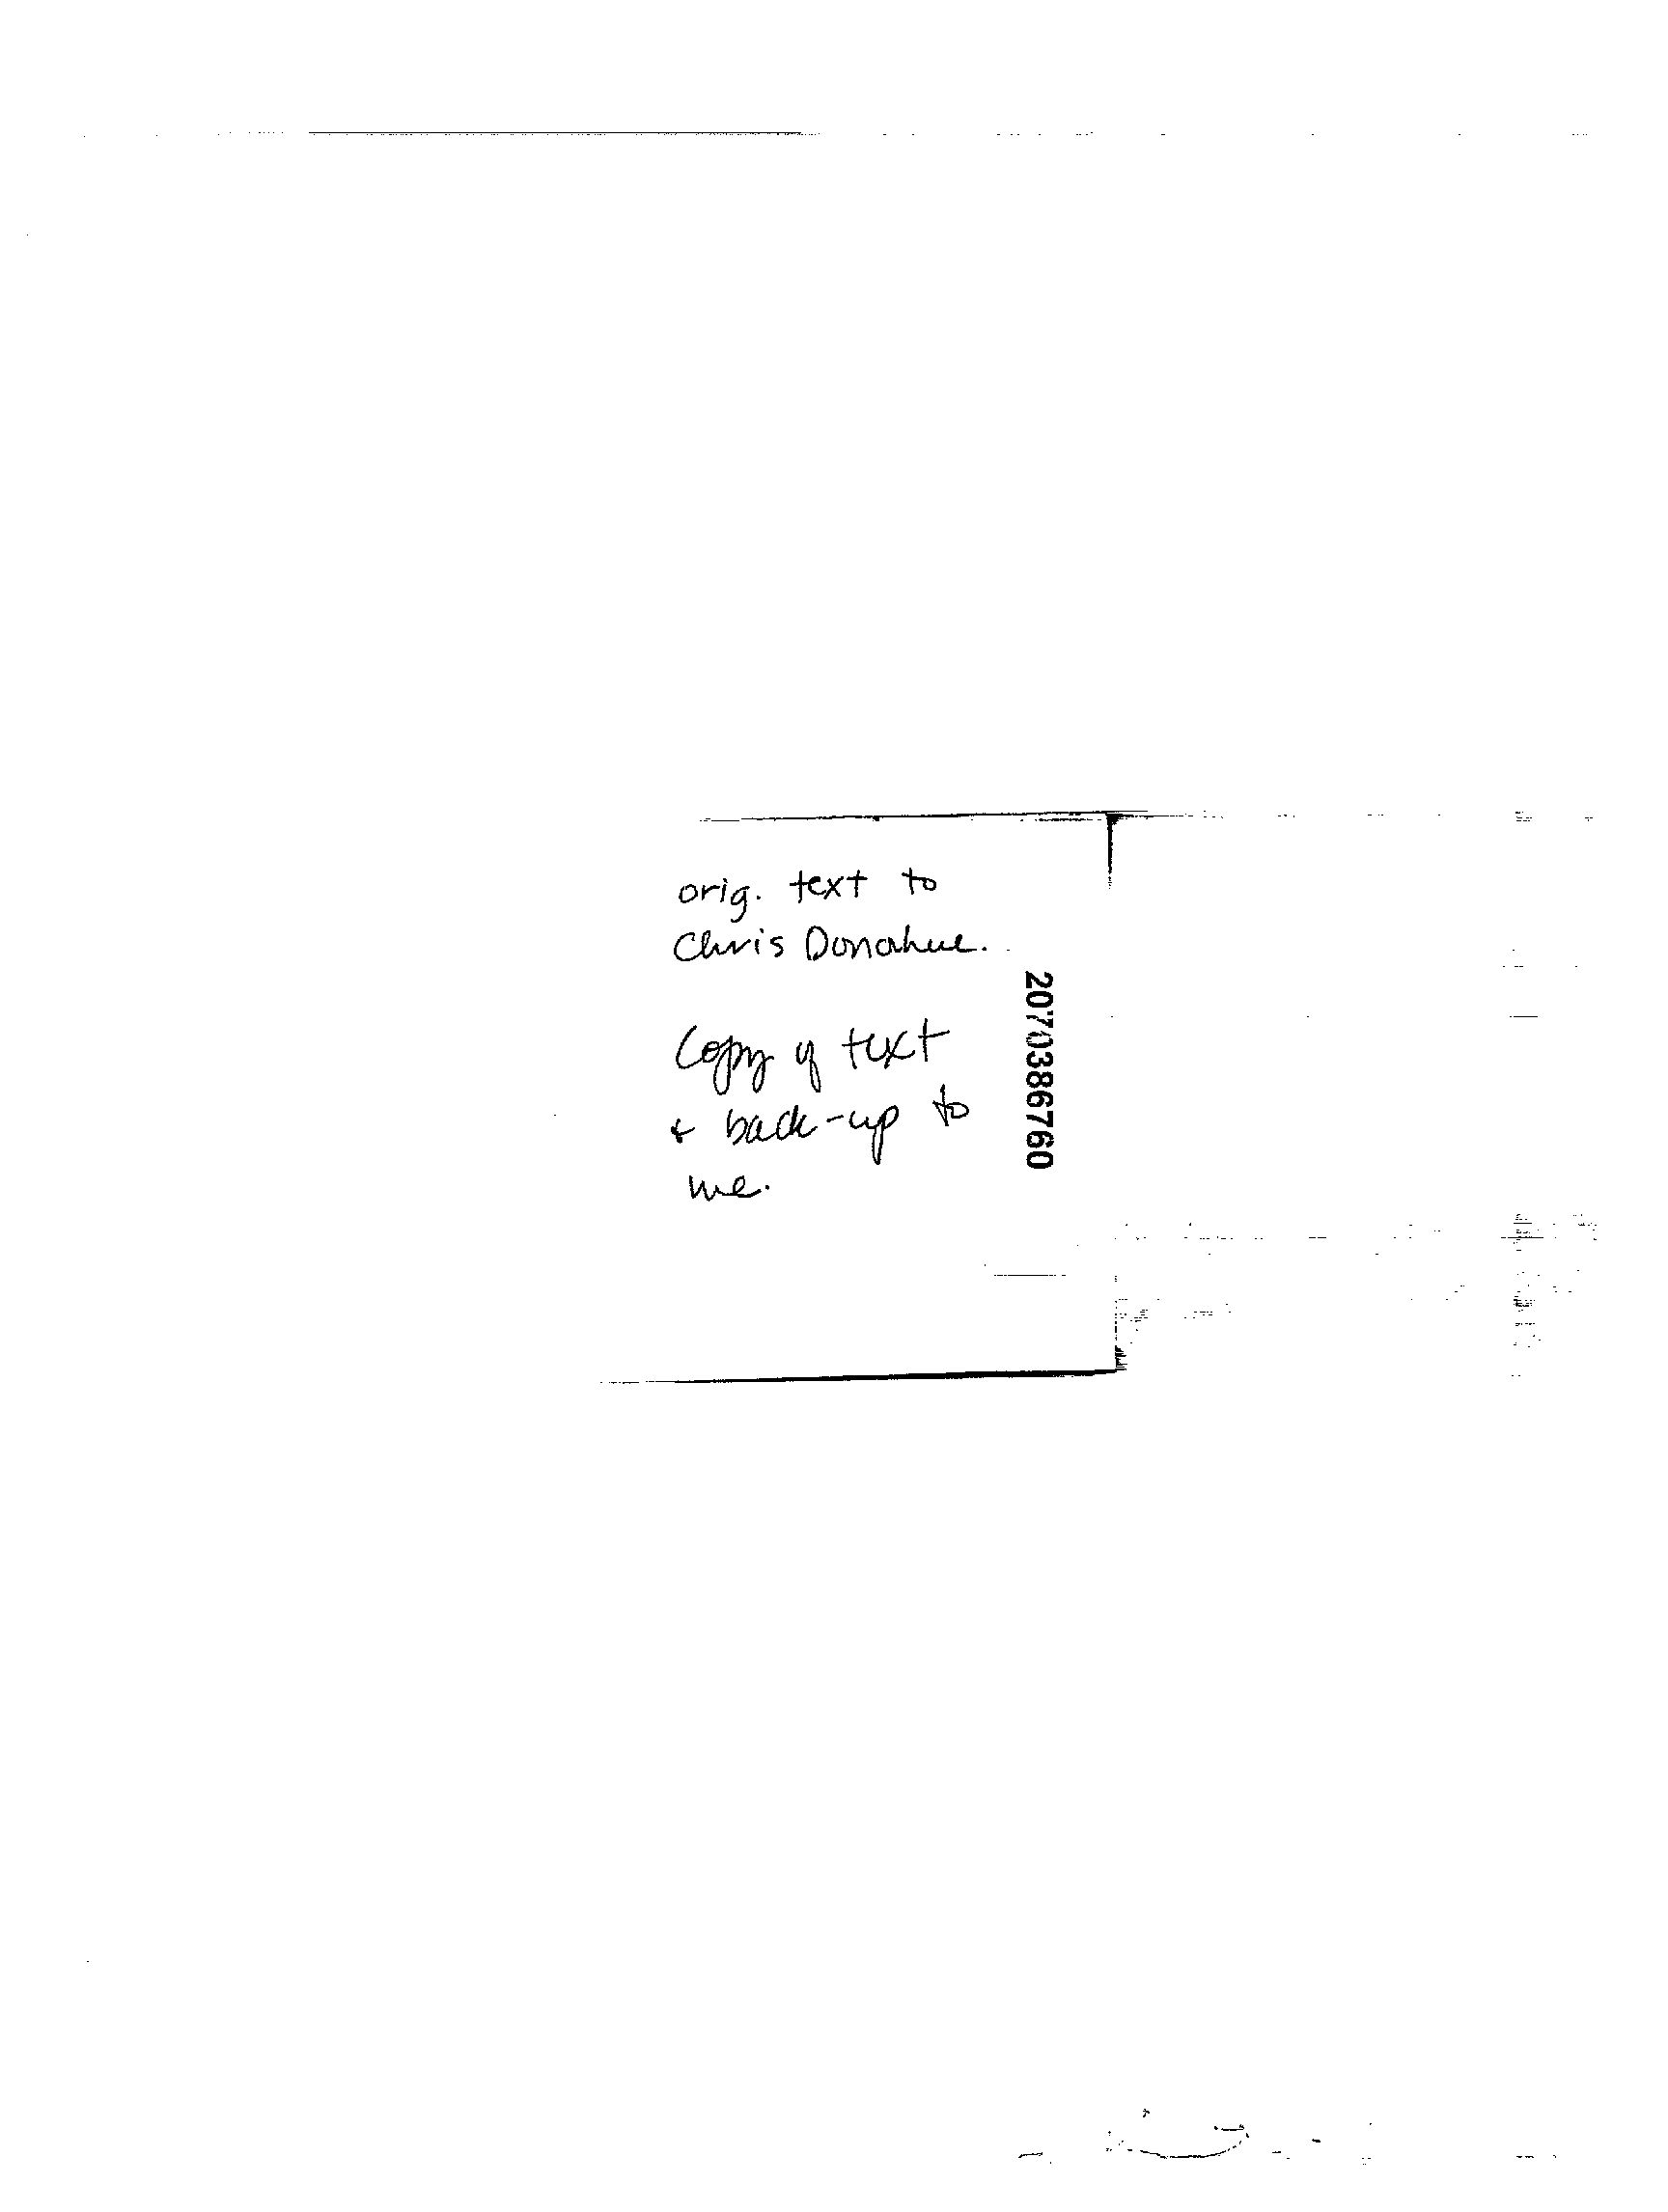 orig. text to
Chris Donahue.
Copy of text
& back-up to
me.
2070386760